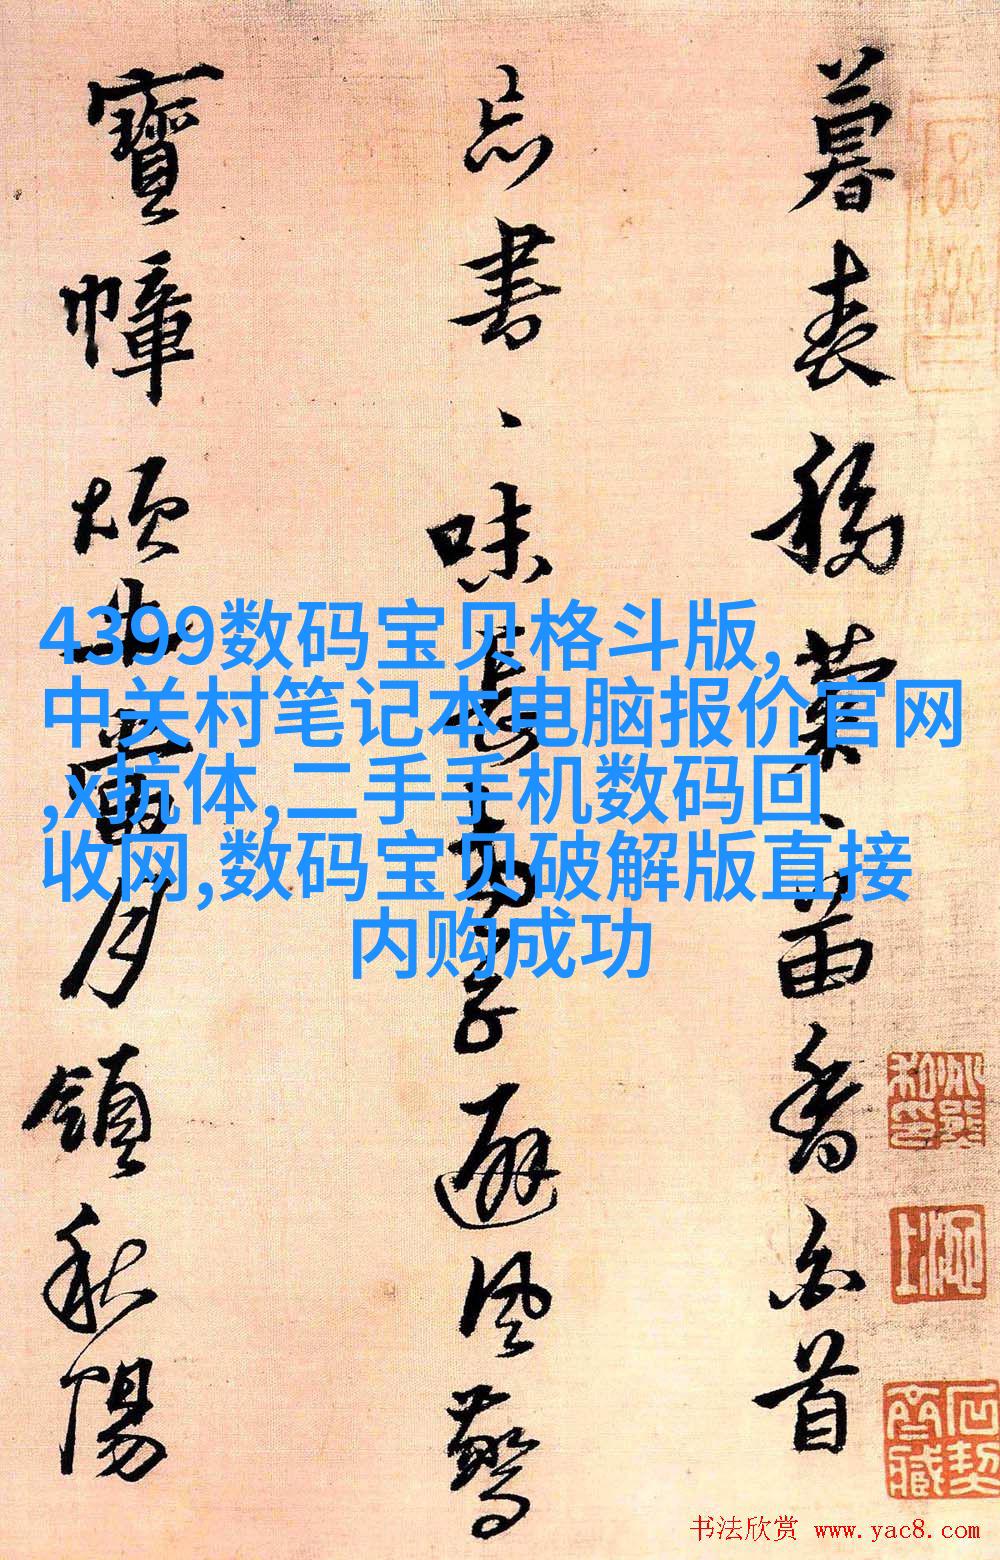 4399数码宝贝格斗版,
中关村笔记本电脑报价官网
,x抗体,二手手机数码回
收网,数码宝贝破解版直接
内购成功
暮春移菊、苗香白首
忘書、味長子避風
寶幛煩月領秋陽
书法欣赏 www.yac8.com